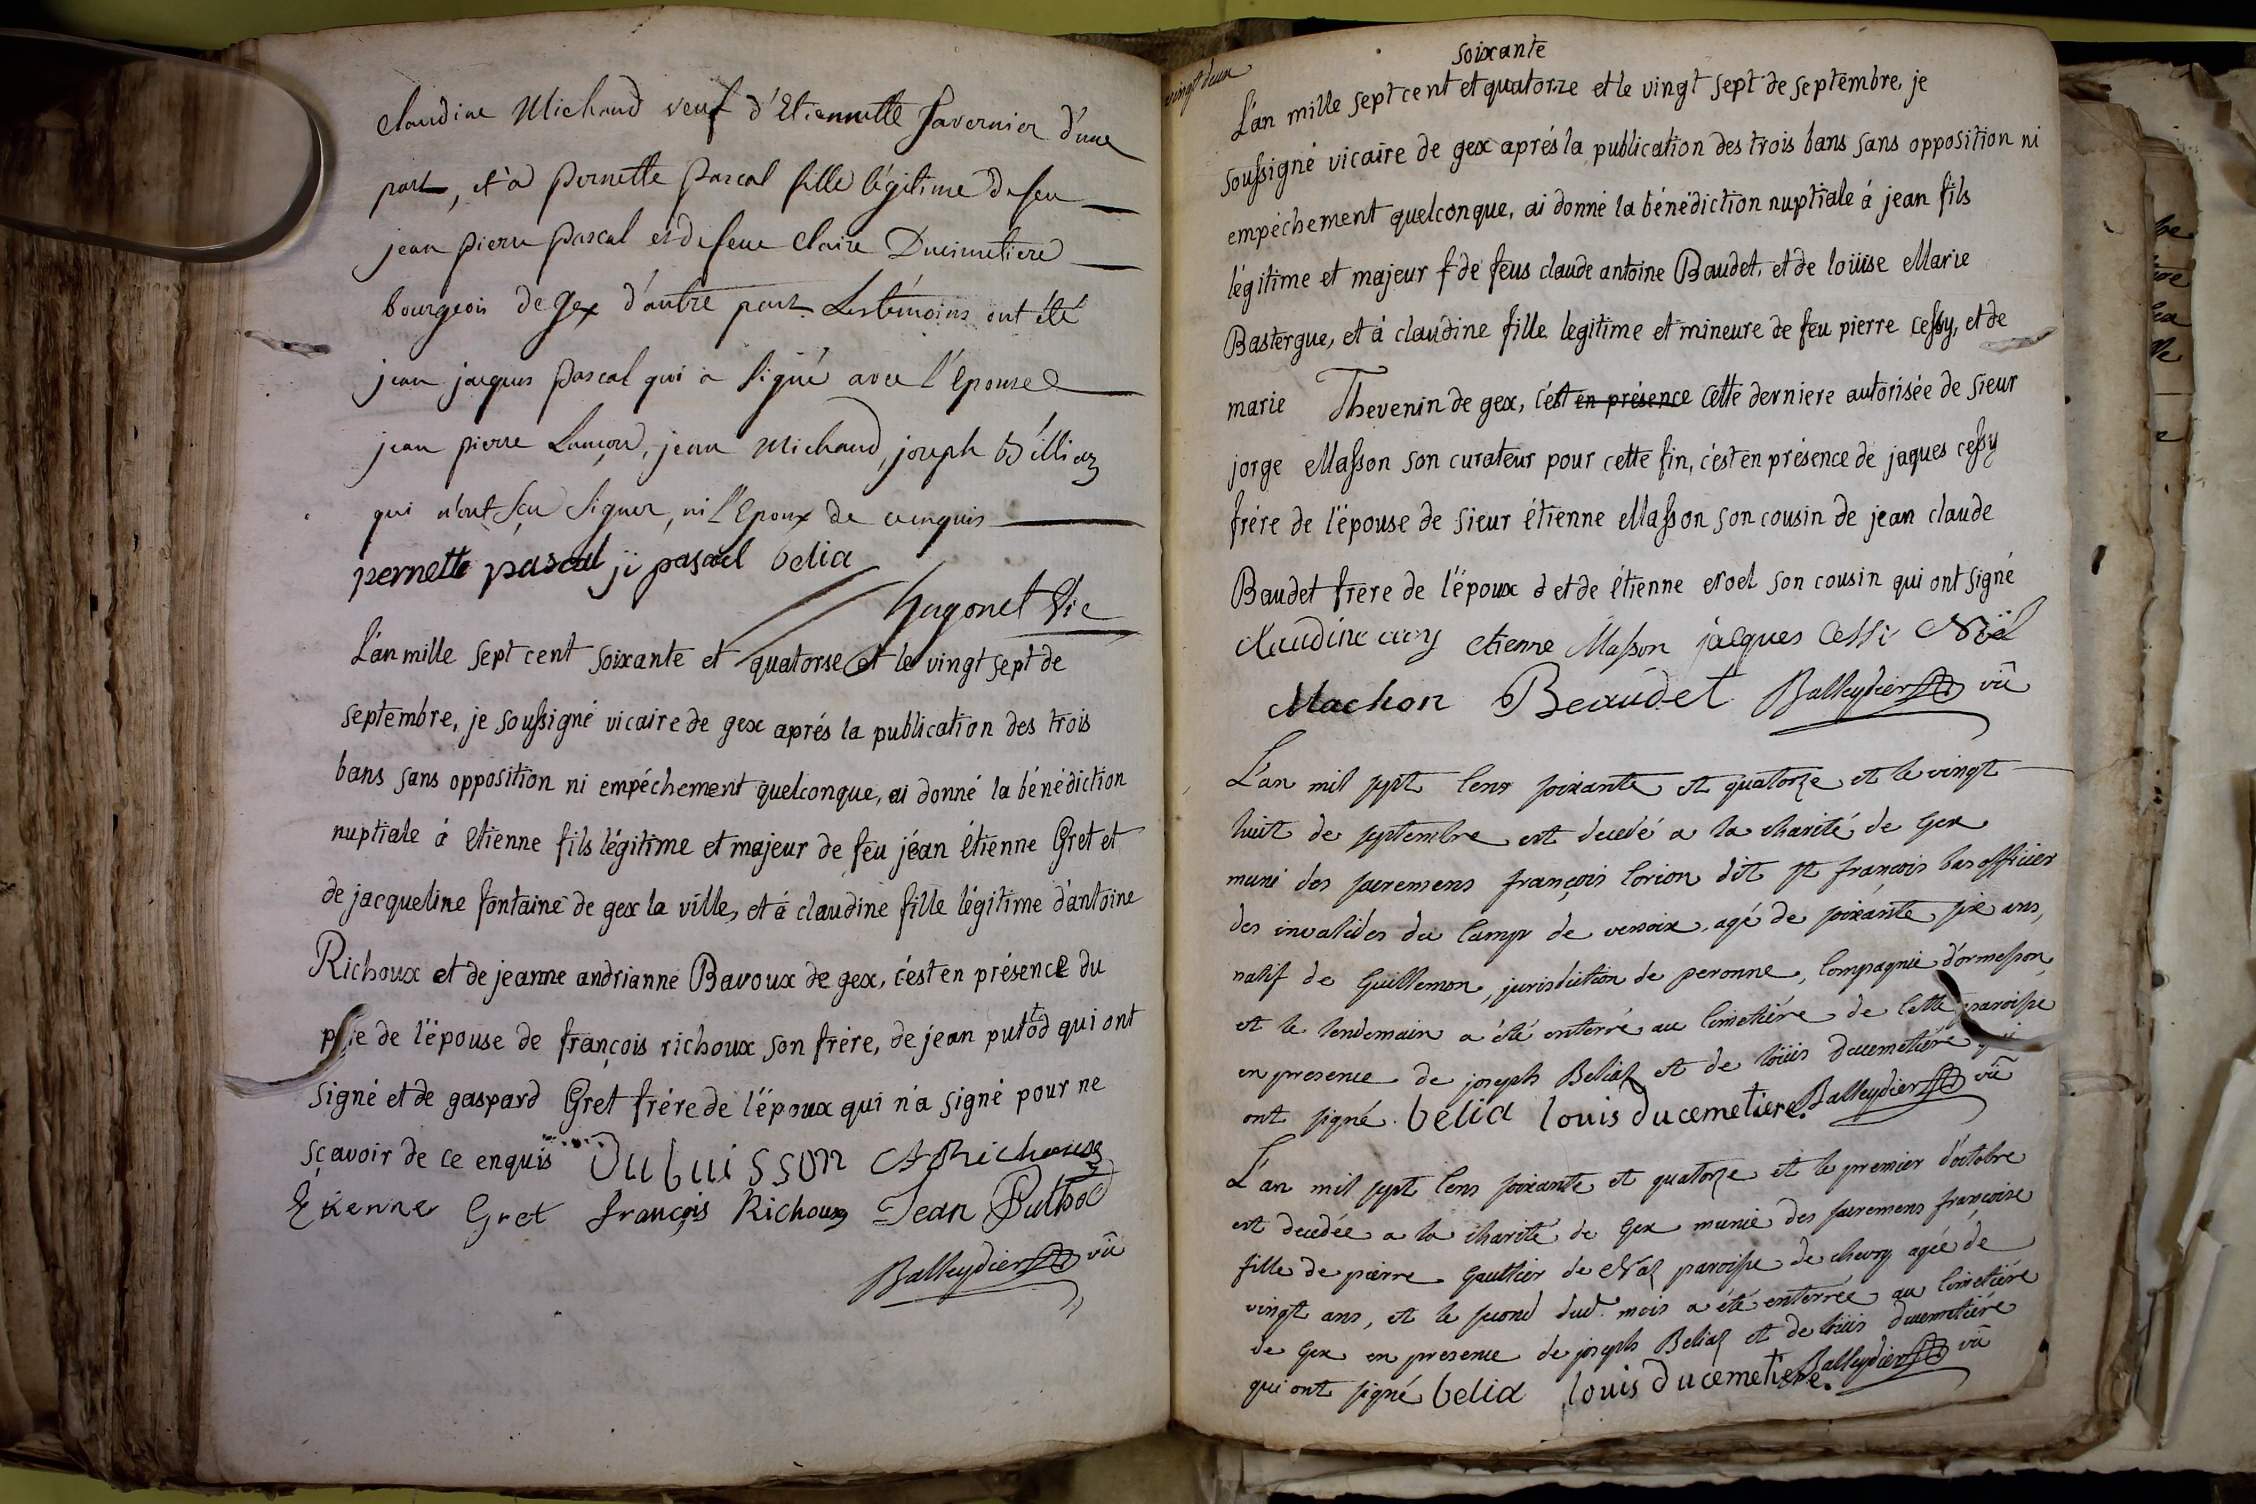 claudine Michaud veuf d'Etiennette Favernier d'une
part, et à pernette pascal fille légitime de feu
jean pierre pascal et de feue claire Ducimetiere
bourgeois de Gex d'autre part Les témoins ont été
jean jacques pascal qui a signé avec l'Epouse
jean pierre Lançon, jean Michaud, joseph Billiaz
qui n'ont sçu signer, ni l'Epoux de ce enquis
pernette pascal jj pascal belia
hugonet Vic
L'an mille sept cent soixante et quatorse et le vingt sept de
septembre, je soussigné vicaire de gex aprés la publication des trois
bans sans opposition ni empéchement quelconque, ai donné la bénédiction
nuptiale á Etienne fils légitime et majeur de feu jéan étienne Gret et
de jacqueline fontaine de gex la ville, et á claudine fille légitime d'antoine
Richoux et de jeanne andrianne Bavoux de gex, c'est en présence du
pére de l'épouse de françois richoux son frère, de jean putod qui ont
signé et de gaspard Gret frére de l'époux qui n'a signé pour ne
sçavoir de ce enquis Dubuisson A Richoux
Etienne Gret françois Richoux Jean Puthod
Balleydier vû
vingt deux
soixante
L'an mille sept cent et quatorze et le vingt sept de septembre, je
soussigné vicaire de gex aprés la publication des trois bans sans opposition ni
empéchement quelconque, ai donné la bénédiction nuptiale á jean fils
légitime et majeur f de feus claude antoine Baudet, et de loüise Marie
Bastergue, et á claudine fille legitime et mineure de feu pierre cessy, et de
marie Thevenin de gex, c'ést en présence cette derniere autorisée de sieur
jorge Masson son curateur pour cette fin, c'ést en présence de jaques cessy
frére de l'épouse de sieur étienne Masson son cousin de jean claude
Baudet frère de l'époux d et de étienne Noel son cousin qui ont signé
claudine etienne Masson jacques Cessi Noël
Machon Beaudet Balleydier vû
L'an mil sept cens soixante et quatorze et le vingt
huit de septembre est decedé a la charité de Gex
muni des sacremens françois lorion dit st françois bas officier
des invalides du camp de versoix, agé de soixante six ans,
natif de Guillemon, jurisdiction de peronne, compagnie d'ormesson,
et le lendemain a été enterré au cimetiére de cette paroisse
en presence de joseph Beliaz et de loüis ducemetiére qui
ont signé. belia louis ducemetiere. Balleydier vû
L'an mil sept cens soixante et quatorze et le premier d'octobre
est decedée a la charité de Gex munie des sacremens françoise
fille de pierre Gaultier de Naz paroisse de chevry agée de
vingt ans, et le second dud. mois a été enterrée au cimetiére
de Gex en presence de joseph Beliaz et de loüis ducemetiére
qui ont signé belia louis ducemetiere. Balleydier vû